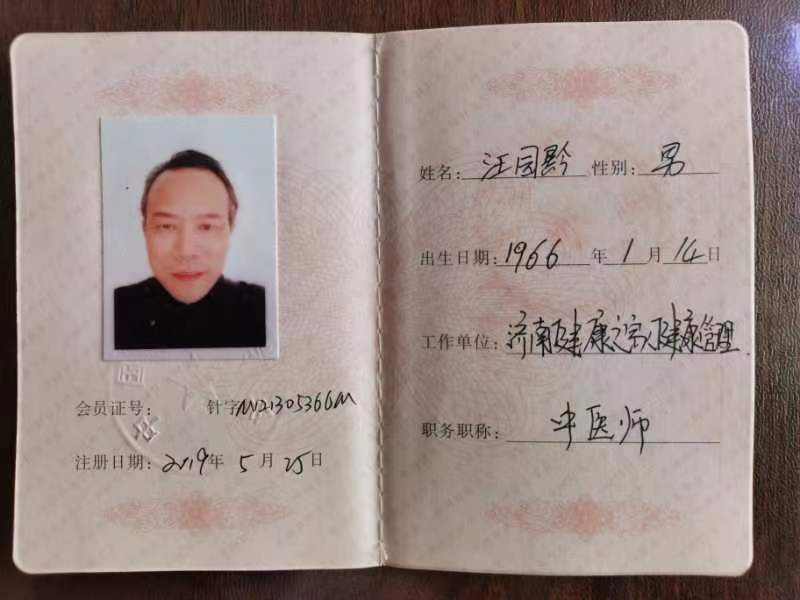 会员证号: 针字M2130536GM
注册日期: 2019年 5月 25日
姓名: 汪园黔 性别: 男
出生日期: 1966年 1月 14日
工作单位: 济南健康之家健康管理
职务职称: 中医师